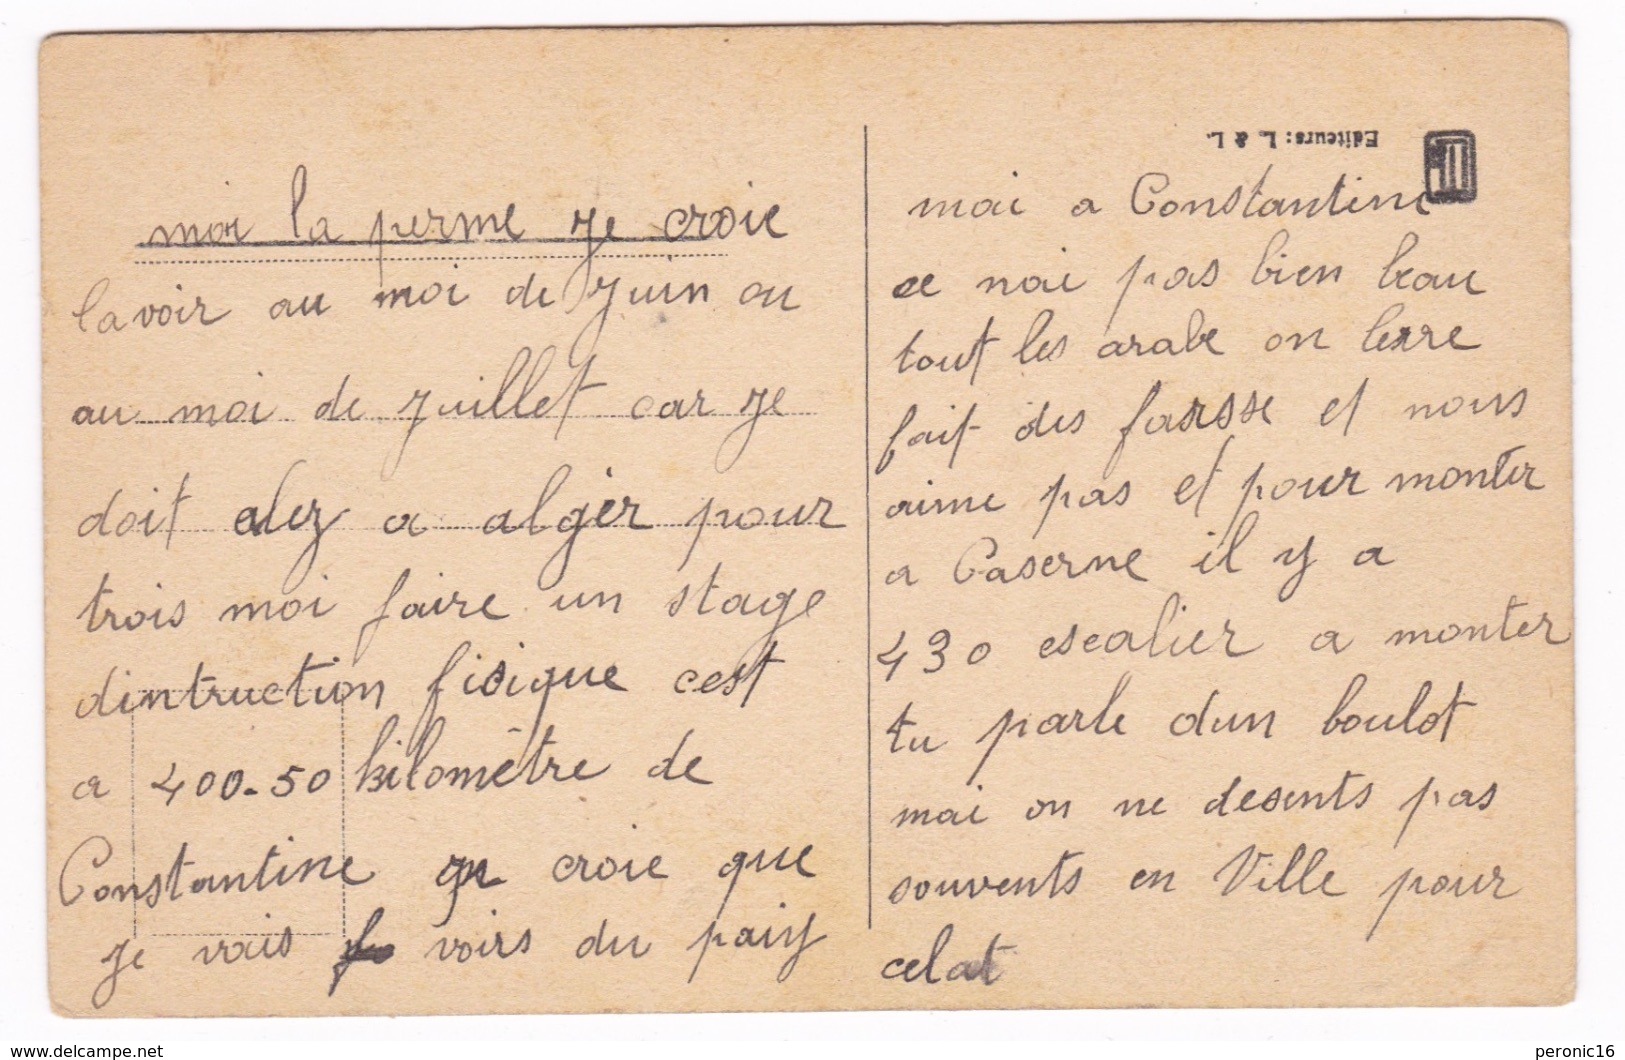 moi la perme je croie
lavoir au moi de juin ou
au moi de juillet car je
doit alez a alger pour
trois moi faire un stage
dintruction fisique cest
a 400-50 kilomètre de
Constantine je croie que
je vais voirs du paiy
Editeurs: L. & L.
mai a Constantine
ce nai pas bien beau
tout les arabe on leure
fait des farsse et nous
aime pas et pour monter
a Caserne il y a
430 escalier a monter
tu parle dun boulot
mai on ne desents pas
souvents en Ville pour
celat
www.delcampe.net
peronic16